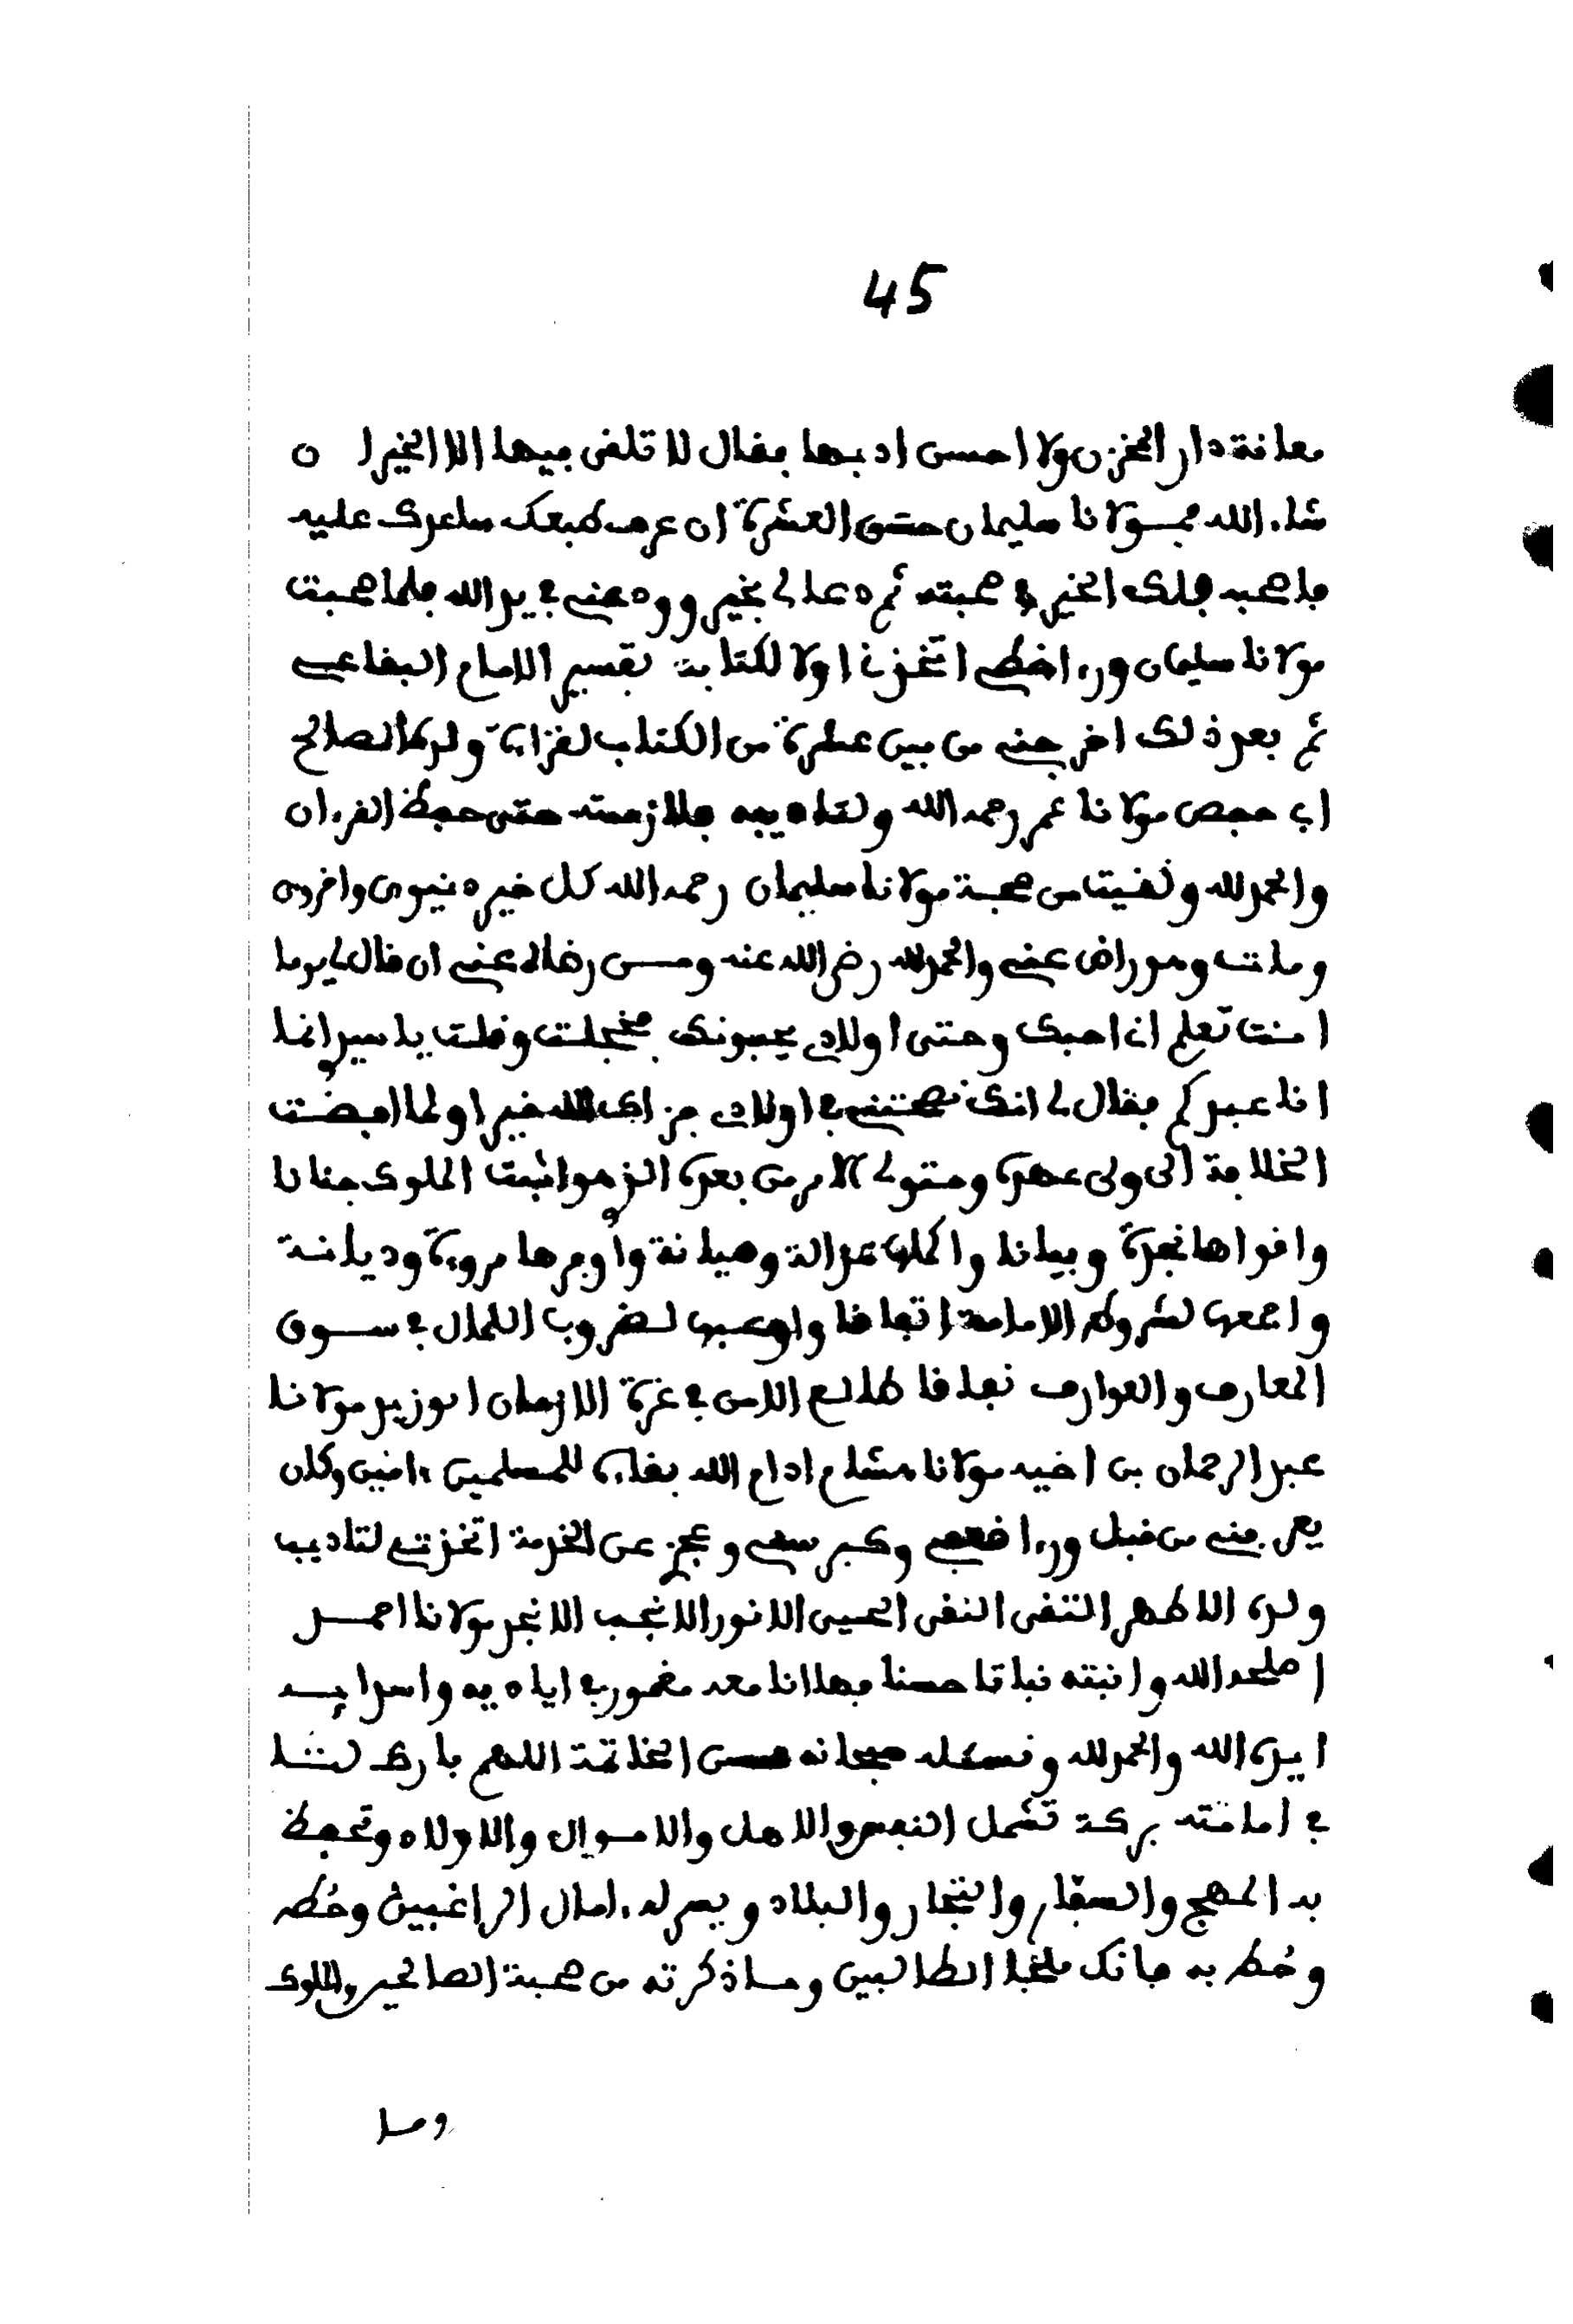 45
معانة دار المخزن ولا احسن ادبها فقال لا تلقى فيها الا الخير ان
شاء الله فمولانا سليمان حسن العشرة ان عرف طبعك ساعدك عليه
فاصحبه فلك الخير في صحبته ثم دعا لي بخير وودعني في يد الله فلما صحبت
مولانا سليمان ورءا خطي اتخذني اولا لكتابة تفسير الامام البقاعي
ثم بعد ذلك اخرجني من بين عشرة من الكتاب لقراءة ولده الصالح
ابي حفص مولانا عمر رحمه الله ولتاديبه فلازمته حتى حفظ القرءان
والحمد لله ولقيت من صحبة مولانا سليمان رحمه الله كل خير دنيوي واخروي
ومات وهو راض عني والحمد لله رضي الله عنه ومن رضاه عني ان قال لي يوما
انت تعلم اني احبك وحتى اولادي يحبونك فخجلت وقلت يا سيدي انما
انا عبدكم فقال لي انك نصحتني في اولادي جزاك الله خيرا ولما افضت
الخلافة الى ولي عهده ومتولي الامر من بعده الذي هو اثبت الملوك جنانا
واقواها نجدة وبيانا واكملها عدالة وصيانة واوفرها مروءة وديانة
واجمعها لشروط الامامة اتفاقا واوعبها لضروب الكمال في سوق
المعارف والعوارف نفاقا طالع الامن في غرة الازمان ابو زيد مولانا
عبد الرحمان بن اخيه مولانا هشام ادام الله بقاءه للمسلمين ءامين وكان
يعرفني من قبل ورءا ضعفي وكبر سني وعجزي عن الخدمة اتخذني لتاديب
ولده الاطهر التقي النقي الحيي الانور الانجب الانجد مولانا احمد
اصلحه الله وانبته نباتا حسنا فها انا معه مغمور في اياديه واسرا به
ايده الله والحمد لله ونسئله سبحانه حسن الخاتمة اللهم بارك لنا
في امانته بركة تشمل النفس والاهل والاموال والاولاد وتحفظ
به المهج والسفار والتجار والبلاد ويسر له ءامال الراغبين وحطه
وحط به فانك ملجا الطالبين وما ذكرته من صحبة الصالحين والملوك
وما